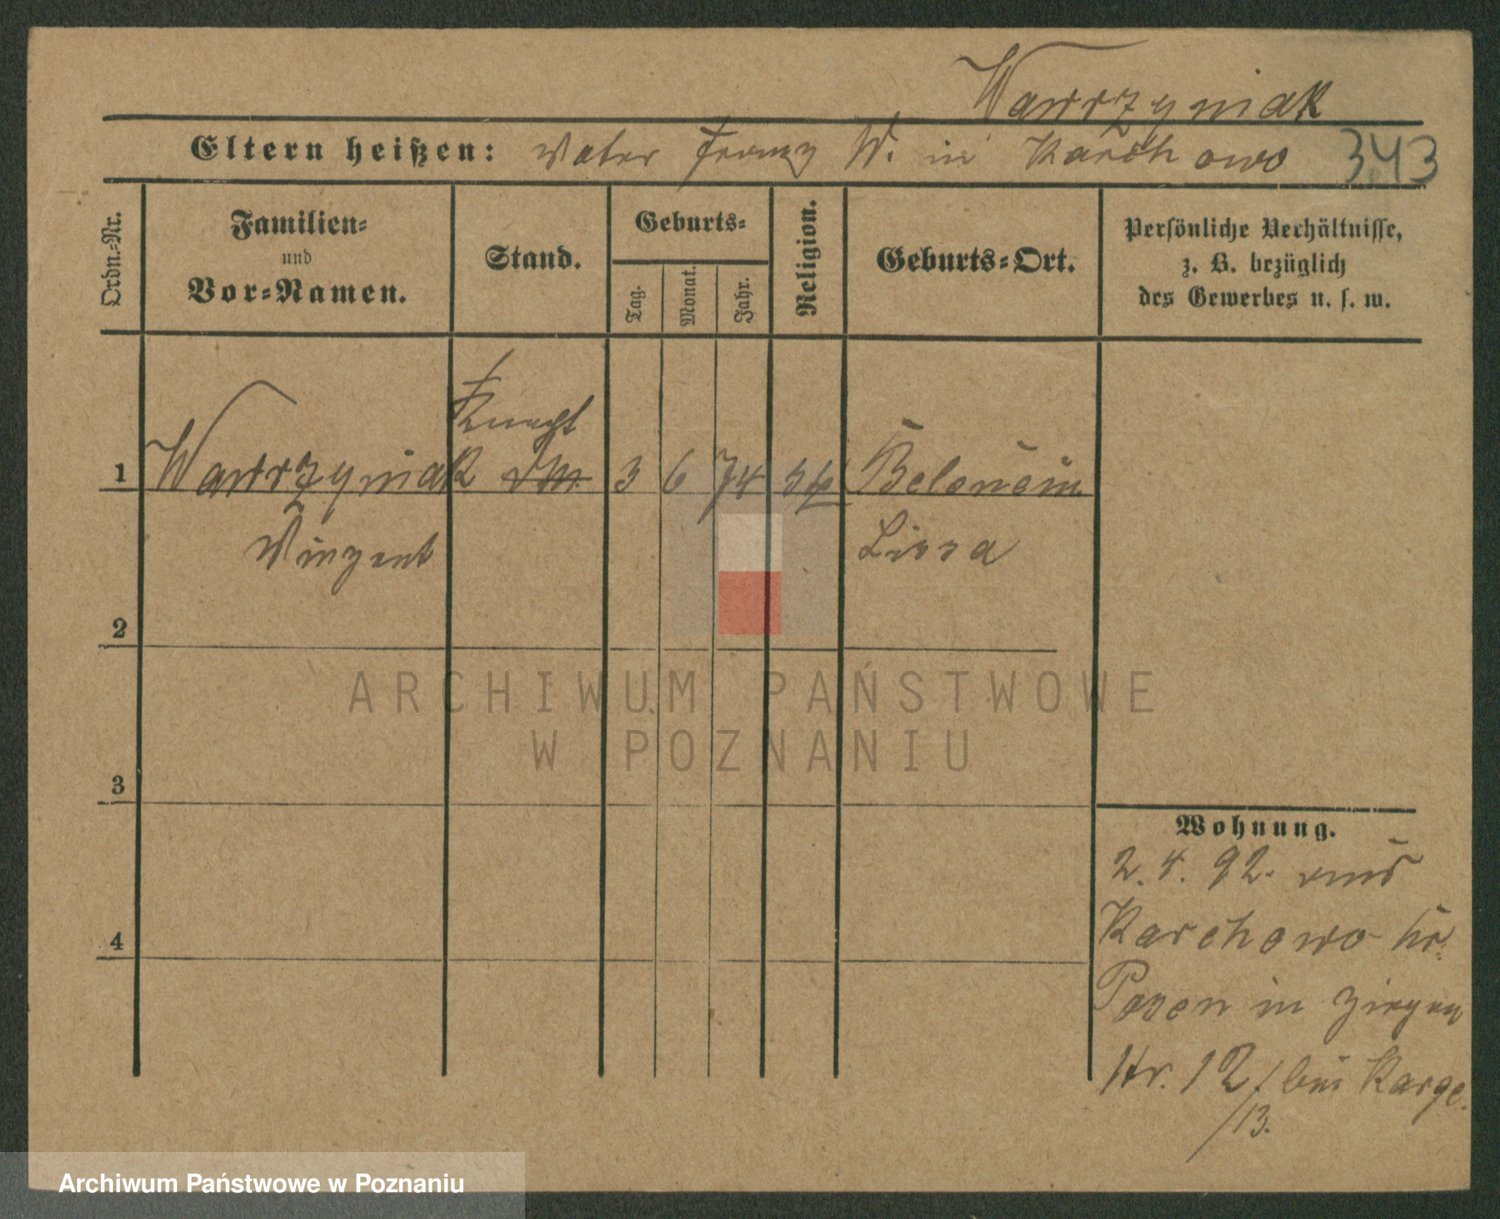 Wawrzyniak
Eltern heißen: Vater Franz W. in Karchowo 343
Ordn.-Nr.
Familien-
und
Vor-Namen.
Stand.
Geburts-
Tag.
Monat.
Jahr.
Religion.
Geburts-Ort.
Persönliche Verhältnisse,
z. B. bezüglich
des Gewerbes u. s. w.
Knecht
1 Wawrzyniak 3 6 74 Belencin
Vinzent Lissa
2
3
4
ARCHIWUM PAŃSTWOWE
W POZNANIU
Wohnung.
2. 4. 92. aus
Karchowo Kr.
Posen in
Nr. 12/ bei Karge.
/13.
Archiwum Państwowe w Poznaniu